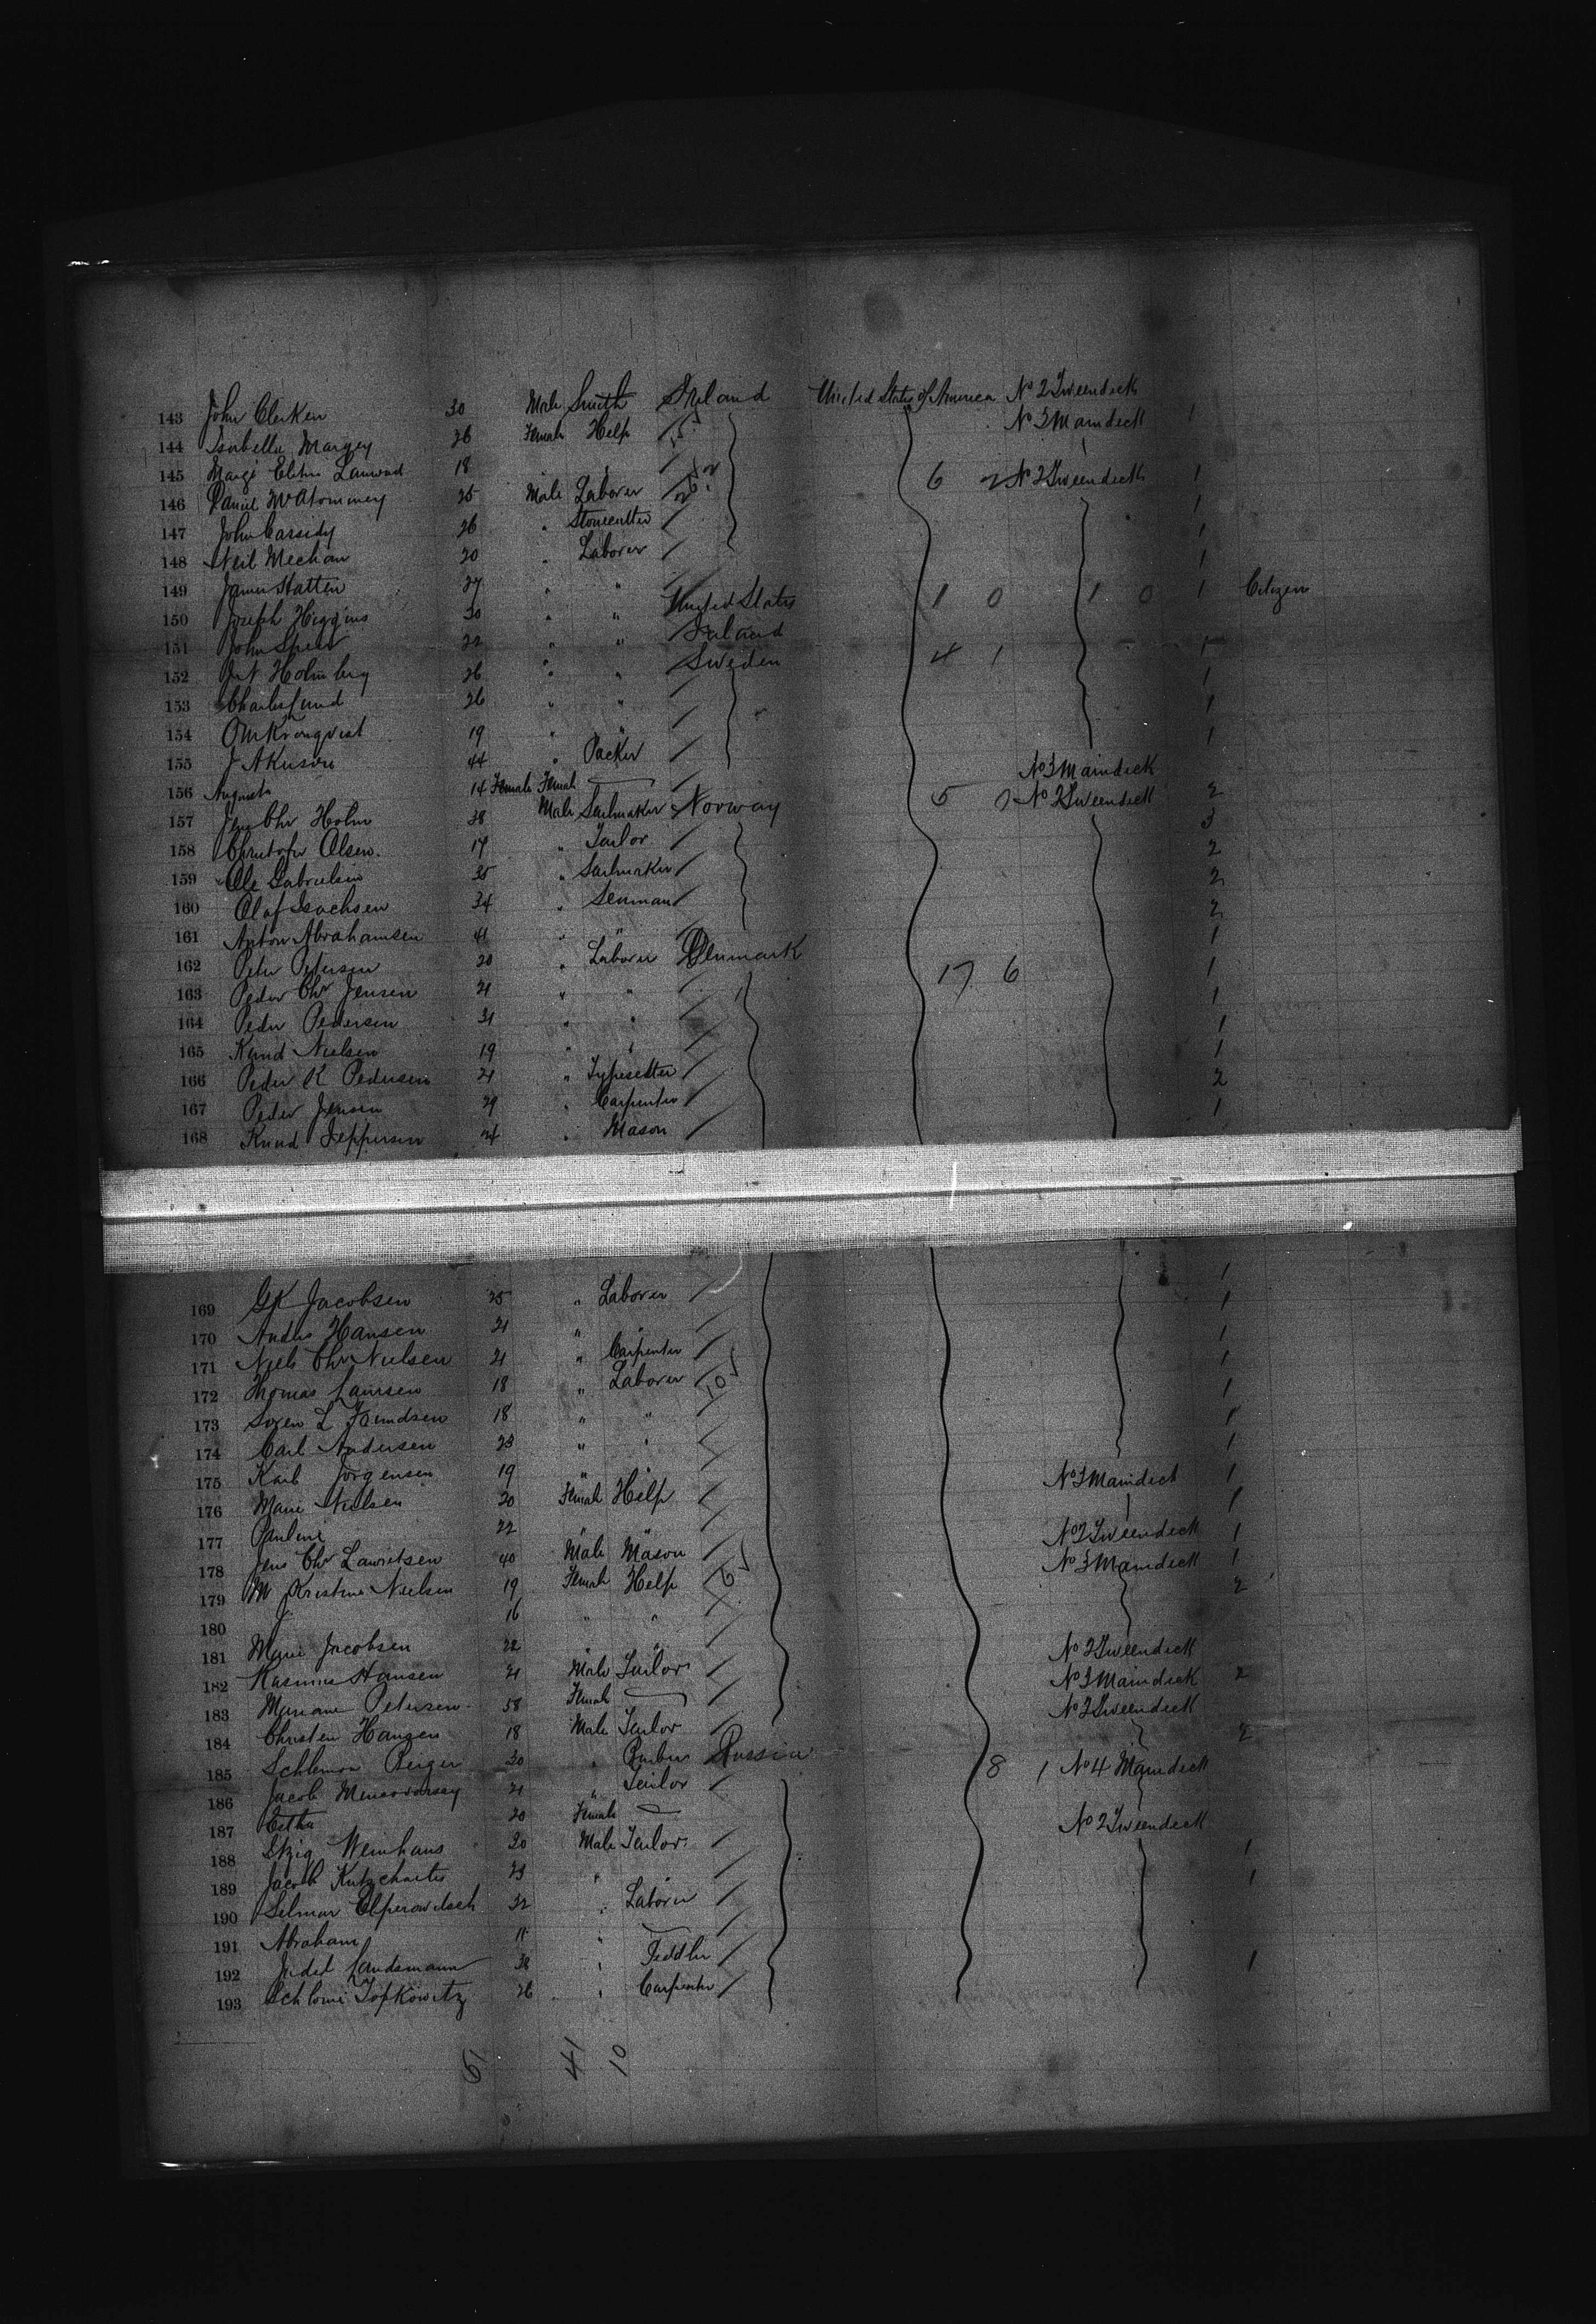 143 John Clerken 30 Male Smith Ireland United States of America No 2 Tweendeck
144 Isabella Margey 26 Female Help No 3 Maindeck 1
145 18
146 Daniel 25 Male Laborer 6 2 No 2 Tweendeck 1
147 John Cassidy 26 " Stonecutter 1
148 Neil Meehan 20 " Laborer 1
149 James Hatten 27 " " 1
150 Joseph Higgins 30 " " United States 1 0 1 0 1 Citizen
151 John 22 " " Ireland
152 Holmberg 26 " " Sweden 4 1 1
153 Charles Lund 26 " " 1
154 Kronqvist 19 " " 1
155 J Akeson 44 " Packer 1
156 Augusta 14 Female Female — No 3 Maindeck
157 Jens Chr Holm 38 Male Sailmaker Norway 5 0 No 2 Tweendeck 2
158 Christofer Olsen. 17 " Tailor 3
159 Ole Gabrielsen 35 " Sailmaker 2
160 Olaf Isachsen 34 " Seaman 2
161 Anton Abrahamsen 41 " " 2
162 Peter Petersen 20 " Laborer Denmark 17 6 1
163 Peder Chr Jensen 21 " " 1
164 Peder Pedersen 31 " " 1
165 Knud Nielsen 19 " " 1
166 Peder K Pedersen 21 " Typesetter 1
167 Peder Jensen 29 " Carpenter 2
168 Knud Jeppesen 24 " Mason 1
169 Jacobsen 25 " Laborer 1
170 Anders Hansen 21 " " 1
171 Niels Chr Nielsen 21 " Carpenter 1
172 Thomas Laursen 18 " Laborer 10 1
173 Soren L 18 " " 1
174 Carl Andersen 23 " " 1
175 Karl Jörgensen 19 " " 1
176 Marie Nielsen 20 Female Help No 3 Maindeck 1
177 Pauline 22 " " 1
178 Jens Chr Lauritsen 40 Male Mason No 2 Tweendeck 1
179 M Kristine Nielsen 19 Female Help 6 No 3 Maindeck 1
180 J. 16 " " 2
181 Marie Jacobsen 22 " "
182 Rasmus Hansen 21 Male Tailor No 2 Tweendeck
183 Mariane Petersen 58 Female — No 3 Maindeck 2
184 Christen Hansen 18 Male Tailor No 2 Tweendeck
185 Schlemon Berger 30 " Barber Russia 8 1 2
186 Jacob 21 " Tailor No 4 Maindeck
187 20 Female —
188 Itzig Weinhaus 20 Male Tailor No 2 Tweendeck
189 Jacob 23 " " 1
190 Selmar 32 " Laborer 1
191 Abraham 11 " —
192 Judel Landsmann 38 " Peddler
193 Schlomi Topkowitz 26 " Carpenter 1
51 41 10